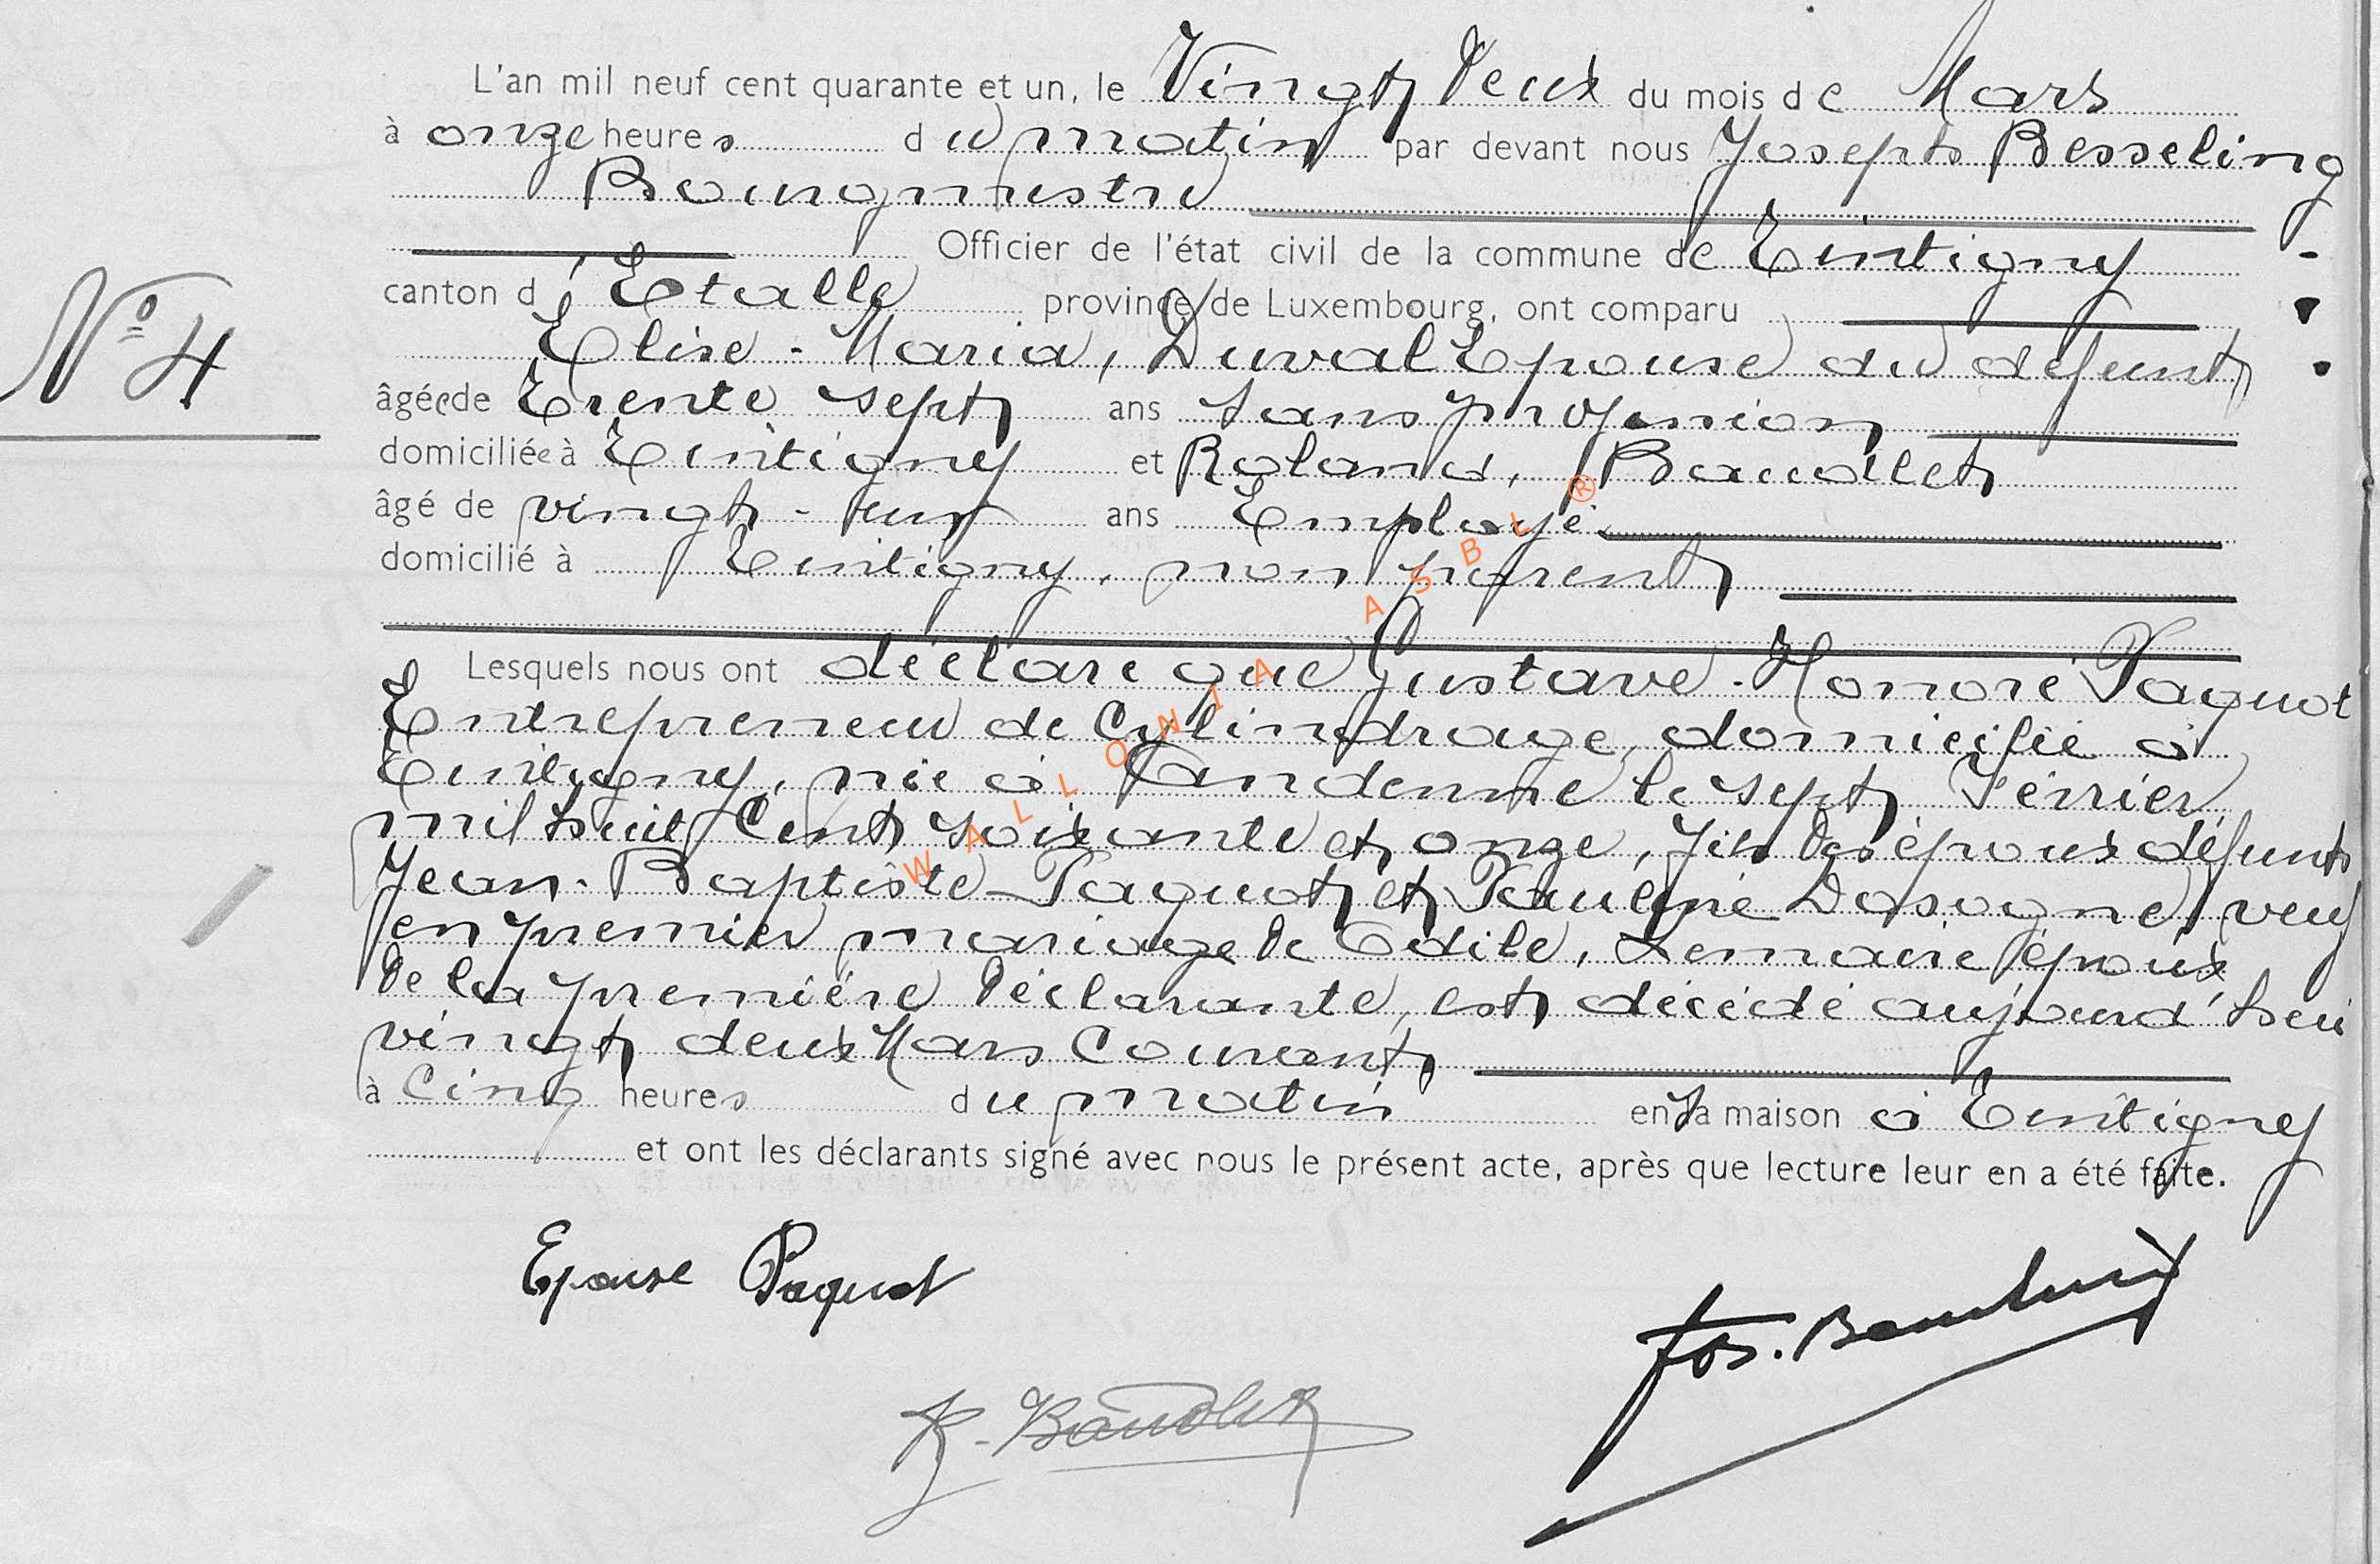 L'an mil neuf cent quarante et un, le Vingt deux du mois de Mars
à onze heures du matin par devant nous Joseph Besseling
Bourgmestre
Officier de l'état civil de la commune de Tintigny
N° 4
canton d'Etalle province de Luxembourg, ont comparu
Elise - Maria, Duval Epouse du défunt
âgée de Trente sept ans sans profession
domiciliée à Tintigny et Roland,
âgé de vingt - ans Employé
domicilié à Tintigny, non parent
Lesquels nous ont déclaré que Gustave - Honoré Paquot
Entrepreneur de Cylindrage, domicilié à
Tintigny, né à Andenne le sept Février
mil huit Cent soixante et onze, fils des époux défunts
Jean - Baptiste Paquot et Pauline Dosogne, veuf
en premier mariage de Odile, Lemaire époux
de la première déclarante, est décédé aujourd'hui
vingt deux Mars Courant
à Cinq heures du matin en sa maison à Tintigny
et ont les déclarants signé avec nous le présent acte, après que lecture leur en a été faite.
Epouse Paquot
Jos.
R.
WALLONIA ASBL ®